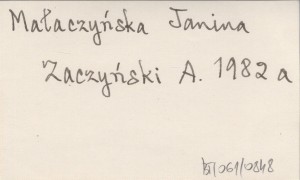 Małaczyńska Janina
Zaczyński A. 1982 a
/061/0848